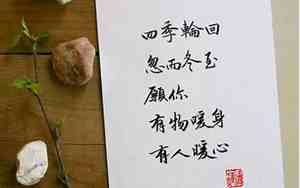 四季輪回
忽而冬至
願你
有物暖身
有人暖心